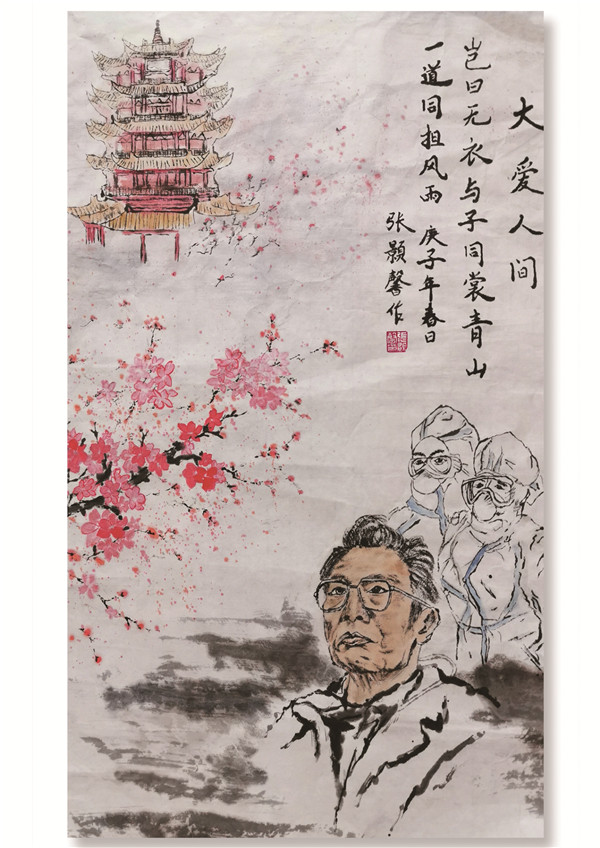 大爱人间
岂曰无衣与子同裳青山
一道同担风雨 庚子年春日
张颢馨作